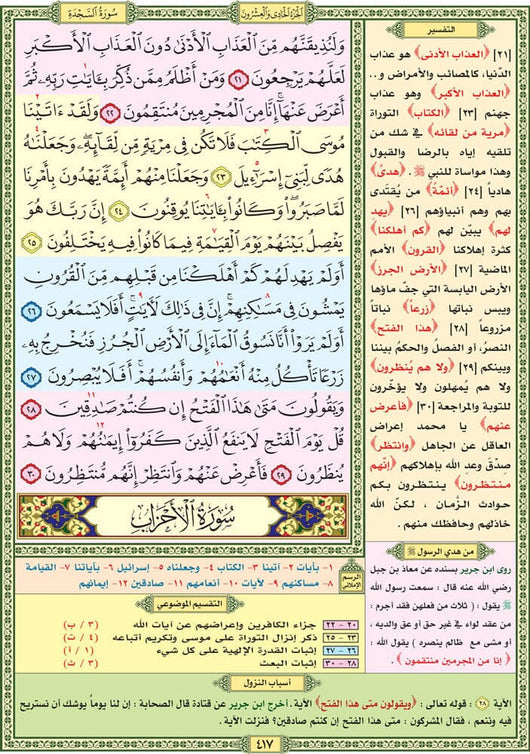 سُورَةُ السَّجْدَةِ
الجُزْءُ الحَادِي وَالعِشْرُونَ
وَلَنُذِيقَنَّهُم مِّنَ ٱلْعَذَابِ ٱلْأَدْنَىٰ دُونَ ٱلْعَذَابِ ٱلْأَكْبَرِ
لَعَلَّهُمْ يَرْجِعُونَ ٢١ وَمَنْ أَظْلَمُ مِمَّن ذُكِّرَ بِـَٔايَٰتِ رَبِّهِۦ ثُمَّ
أَعْرَضَ عَنْهَآ إِنَّا مِنَ ٱلْمُجْرِمِينَ مُنتَقِمُونَ ٢٢ وَلَقَدْ ءَاتَيْنَا
مُوسَى ٱلْكِتَٰبَ فَلَا تَكُن فِى مِرْيَةٍ مِّن لِّقَآئِهِۦ وَجَعَلْنَٰهُ
هُدًى لِّبَنِىٓ إِسْرَٰٓءِيلَ ٢٣ وَجَعَلْنَا مِنْهُمْ أَئِمَّةً يَهْدُونَ بِأَمْرِنَا
لَمَّا صَبَرُوا۟ وَكَانُوا۟ بِـَٔايَٰتِنَا يُوقِنُونَ ٢٤ إِنَّ رَبَّكَ هُوَ
يَفْصِلُ بَيْنَهُمْ يَوْمَ ٱلْقِيَٰمَةِ فِيمَا كَانُوا۟ فِيهِ يَخْتَلِفُونَ ٢٥
أَوَلَمْ يَهْدِ لَهُمْ كَمْ أَهْلَكْنَا مِن قَبْلِهِم مِّنَ ٱلْقُرُونِ
يَمْشُونَ فِى مَسَٰكِنِهِمْ إِنَّ فِى ذَٰلِكَ لَـَٔايَٰتٍ أَفَلَا يَسْمَعُونَ ٢٦
أَوَلَمْ يَرَوْا۟ أَنَّا نَسُوقُ ٱلْمَآءَ إِلَى ٱلْأَرْضِ ٱلْجُرُزِ فَنُخْرِجُ بِهِۦ
زَرْعًا تَأْكُلُ مِنْهُ أَنْعَٰمُهُمْ وَأَنفُسُهُمْ أَفَلَا يُبْصِرُونَ ٢٧
وَيَقُولُونَ مَتَىٰ هَٰذَا ٱلْفَتْحُ إِن كُنتُمْ صَٰدِقِينَ ٢٨
قُلْ يَوْمَ ٱلْفَتْحِ لَا يَنفَعُ ٱلَّذِينَ كَفَرُوٓا۟ إِيمَٰنُهُمْ وَلَا هُمْ
يُنظَرُونَ ٢٩ فَأَعْرِضْ عَنْهُمْ وَٱنتَظِرْ إِنَّهُم مُّنتَظِرُونَ ٣٠
سُورَةُ الأَحْزَابِ
التفسير
[٢١] ﴿العذاب الأدنى﴾ هو عذاب
الدّنيا، كالمصائب والأمراض و..
﴿العذاب الأكبر﴾ وهو عذاب
جهنم [٢٣] ﴿الكتاب﴾ التوراة
﴿مرية من لقائه﴾ في شك من
تلقيه إياه بالرضا والقبول
وهذا مواساة للنبي ﷺ. ﴿هدىً﴾
هادياً [٢٤] ﴿أئمّة﴾ من يُقتدى
بهم وهم أنبياؤهم [٢٦] ﴿يهد
لهم﴾ يبيّن لهم ﴿كم أهلكنا﴾
كثرة إهلاكنا ﴿القرون﴾ الأمم
الماضية [٢٧] ﴿الأرض الجرز﴾
الأرض اليابسة التي جفّ ماؤها
ويبس نباتها ﴿زرعاً﴾ نباتاً
مزروعاً [٢٨] ﴿هذا الفتح﴾
النصرُ، أو الفصلُ والحكمُ بيننا
وبينكم [٢٩] ﴿ولا هم يُنظرون﴾
ولا هم يُمهلون ولا يؤخّرون
للتوبة والمراجعة [٣٠] ﴿فأعرض
عنهم﴾ يا محمد إعراض
العاقل عن الجاهل ﴿وانتظر﴾
صِدْقَ وعد الله بإهلاكهم ﴿إنّهم
منتظرون﴾ ينتظرون بكم
حوادث الزّمان ، لكنّ الله
خاذلهم وحافظك منهم .
من هدي الرسول ﷺ
روى ابن جرير بسنده عن معاذ بن جبل
رضي الله عنه قال : سمعت رسول الله
ﷺ يقول : ( ثلاث من فعلهن فقد أجرم :
من عقد لواء في غير حق أو عق والديه ،
أو مشى مع ظالم ينصره ) يقول الله :
﴿ إنا من المجرمين منتقمون ﴾ .
الرسم الإملائي
١- بآيات ٢- آتينا ٣- الكتاب ٤- وجعلناه ٥- إسرائيل ٦- بآياتنا ٧- القيامة
٨- مساكنهم ٩- لآيات ١٠- أنعامهم ١١- صادقين ١٢- إيمانهم
التقسيم الموضوعي
٢٠ - ٢٢ جزاء الكافرين وإعراضهم عن آيات الله (٣ / ب)
٢٣ - ٢٥ ذكر إنزال التوراة على موسى وتكريم أتباعه (٤ / ت)
٢٦ - ٢٧ إثبات القدرة الإلهية على كل شيء (١ / أ)
٢٨ - ٣٠ إثبات البعث (٣ / ث)
أسباب النزول
الآية ٢٨ : قوله تعالى : ﴿ويقولون متى هذا الفتح﴾ الآية. أخرج ابن جرير عن قتادة قال الصحابة : إن لنا يوماً يوشك أن نستريح
فيه وننعم ، فقال المشركون : متى هذا الفتح إن كنتم صادقين؟ فنزلت الآية .
٤١٧